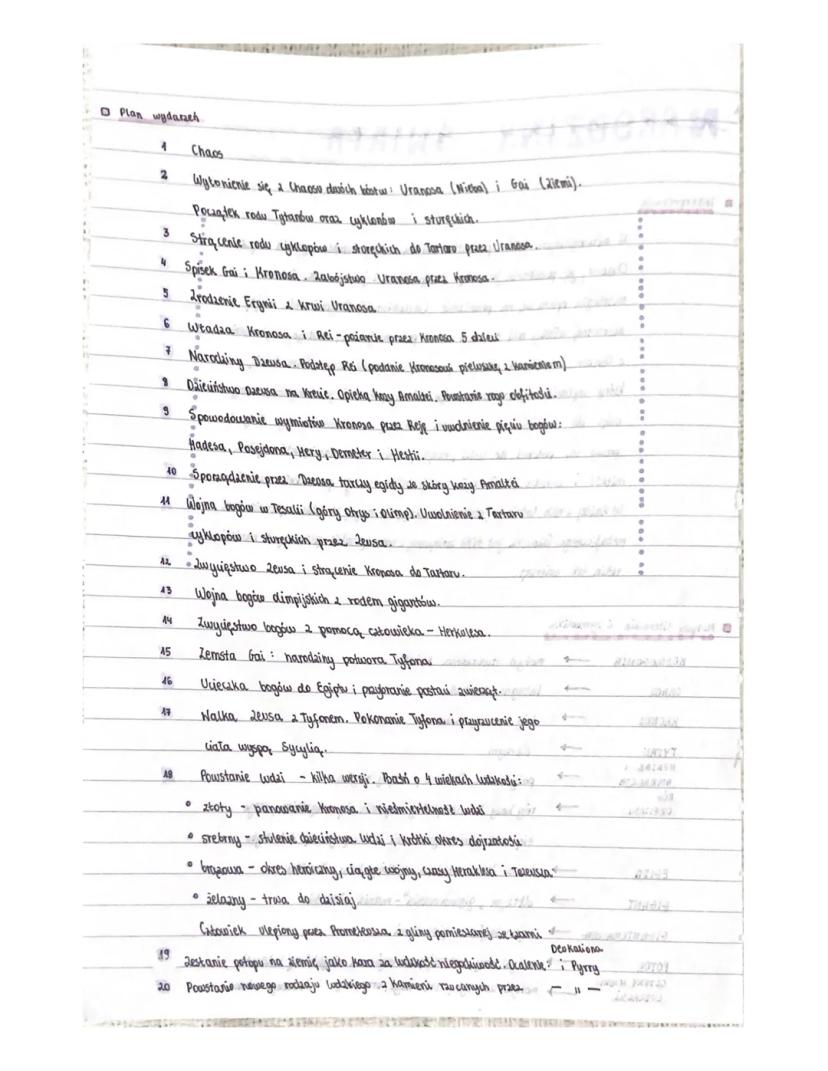 Plan wydarzeń
1 Chaos
2 Wyłonienie się z Chaosu dwóch bóstw: Uranosa (Nieba) i Gai (Ziemi).
Początek rodu Tytanów oraz cyklonów i sturękich.
3 Strącenie rodu cyklopów i storękich do Tartaru przez Uranosa.
4 Spisek Gai i Kronosa. Zabójstwo Uranosa przez Kronosa.
5 Zrodzenie Erynii z krwi Uranosa
6 Władza Kronosa i Rei - pożarcie przez Kronosa 5 dzieci
7 Narodziny Dzeusa. Podstęp Rei (podanie Kronosowi pieluszkę z kamieniem)
8 Dzieciństwo Dzeusa na Krecie. Opieka kozy Amaltei. Powstanie rogo obfitości.
9 Spowodowanie wymiotów Kronosa przez Reję i uwolnienie pięciu bogów:
Hadesa, Posejdona, Hery, Demeter i Hestii.
10 Sporządzenie przez Dzeusa tarczy egidy ze skóry kozy Amaltei
11 Wojna bogów w Tesalii (góry Otrys i Olimp). Uwolnienie z Tartaru
cyklopów i sturękich przez Zeusa.
12 Zwycięstwo Zeusa i strącenie Kronosa do Tartaru.
13 Wojna bogów olimpijskich z rodem gigantów.
14 Zwycięstwo bogów z pomocą człowieka - Herkulesa.
15 Zemsta Gai: narodziny potwora Tyfona
16 Ucieczka bogów do Egiptu i przybranie postaci zwierząt.
17 Walka Zeusa z Tyfonem. Pokonanie Tyfona i przyrzucenie jego
ciała wyspą Sycylią.
18 Powstanie ludzi - kilka wersji. Baśń o 4 wiekach ludzkości:
• złoty - panowanie Kronosa i nieśmiertelność ludzi
• srebrny - stulenie dzieciństwa ludzi i krótki okres dojrzałości
• brązowa - okres heroiczny, ciągłe wojny, czasy Heraklesa i Tezeusza
• żelazny - trwa do dzisiaj
Człowiek ulepiony przez Prometeusza z gliny pomieszanej ze łzami
19 Zesłanie potopu na ziemię jako kara za ludzkość niegodziwość. Ocalenie: Deukaliona i Pyrry
20 Powstanie nowego rodzaju ludzkiego z kamieni rzucanych przez - " -